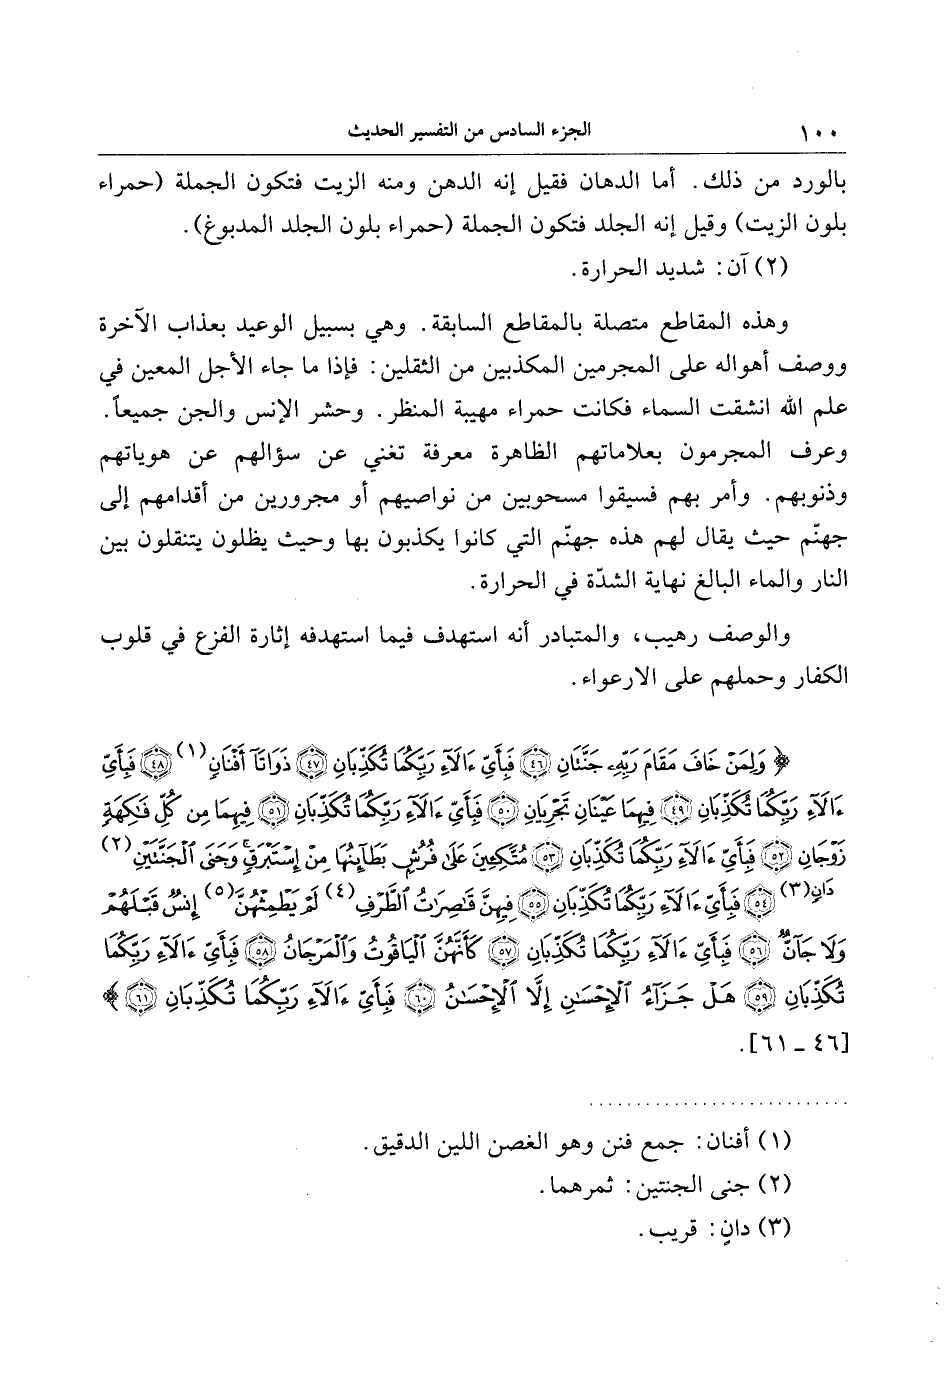 ١٠٠ الجزء السادس من التفسير الحديث
بالورد من ذلك. أما الدهان فقيل إنه الدهن ومنه الزيت فتكون الجملة (حمراء
بلون الزيت) وقيل إنه الجلد فتكون الجملة (حمراء بلون الجلد المدبوغ).
(٢) آن: شديد الحرارة.
وهذه المقاطع متصلة بالمقاطع السابقة. وهي بسبيل الوعيد بعذاب الآخرة
ووصف أهواله على المجرمين المكذبين من الثقلين: فإذا ما جاء الأجل المعين في
علم الله انشقت السماء فكانت حمراء مهيبة المنظر. وحشر الإنس والجن جميعاً.
وعرف المجرمون بعلاماتهم الظاهرة معرفة تغني عن سؤالهم عن هوياتهم
وذنوبهم. وأمر بهم فسيقوا مسحوبين من نواصيهم أو مجرورين من أقدامهم إلى
جهنّم حيث يقال لهم هذه جهنّم التي كانوا يكذبون بها وحيث يظلون يتنقلون بين
النار والماء البالغ نهاية الشدّة في الحرارة.
والوصف رهيب، والمتبادر أنه استهدف فيما استهدفه إثارة الفزع في قلوب
الكفار وحملهم على الارعواء.
﴿ وَلِمَنْ خَافَ مَقَامَ رَبِّهِۦ جَنَّتَانِ ٤٦ فَبِأَيِّ ءَالَآءِ رَبِّكُمَا تُكَذِّبَانِ ٤٧ ذَوَاتَآ أَفْنَانٍ (١) ٤٨ فَبِأَيِّ
ءَالَآءِ رَبِّكُمَا تُكَذِّبَانِ ٤٩ فِيهِمَا عَيْنَانِ تَجْرِيَانِ ٥٠ فَبِأَيِّ ءَالَآءِ رَبِّكُمَا تُكَذِّبَانِ ٥١ فِيهِمَا مِن كُلِّ فَٰكِهَةٍ
زَوْجَانِ ٥٢ فَبِأَيِّ ءَالَآءِ رَبِّكُمَا تُكَذِّبَانِ ٥٣ مُتَّكِـِٔينَ عَلَىٰ فُرُشٍۭ بَطَآئِنُهَا مِنْ إِسْتَبْرَقٍۚ وَجَنَى ٱلْجَنَّتَيْنِ (٢)
دَانٍ (٣) ٥٤ فَبِأَيِّ ءَالَآءِ رَبِّكُمَا تُكَذِّبَانِ ٥٥ فِيهِنَّ قَٰصِرَٰتُ ٱلطَّرْفِ (٤) لَمْ يَطْمِثْهُنَّ (٥) إِنسٌ قَبْلَهُمْ
وَلَا جَآنٌّ ٥٦ فَبِأَيِّ ءَالَآءِ رَبِّكُمَا تُكَذِّبَانِ ٥٧ كَأَنَّهُنَّ ٱلْيَاقُوتُ وَٱلْمَرْجَانُ ٥٨ فَبِأَيِّ ءَالَآءِ رَبِّكُمَا
تُكَذِّبَانِ ٥٩ هَلْ جَزَآءُ ٱلْإِحْسَٰنِ إِلَّا ٱلْإِحْسَٰنُ ٦٠ فَبِأَيِّ ءَالَآءِ رَبِّكُمَا تُكَذِّبَانِ ٦١ ﴾
[٤٦ ـ ٦١].
(١) أفنان: جمع فنن وهو الغصن اللين الدقيق.
(٢) جنى الجنتين: ثمرهما.
(٣) دانٍ: قريب.